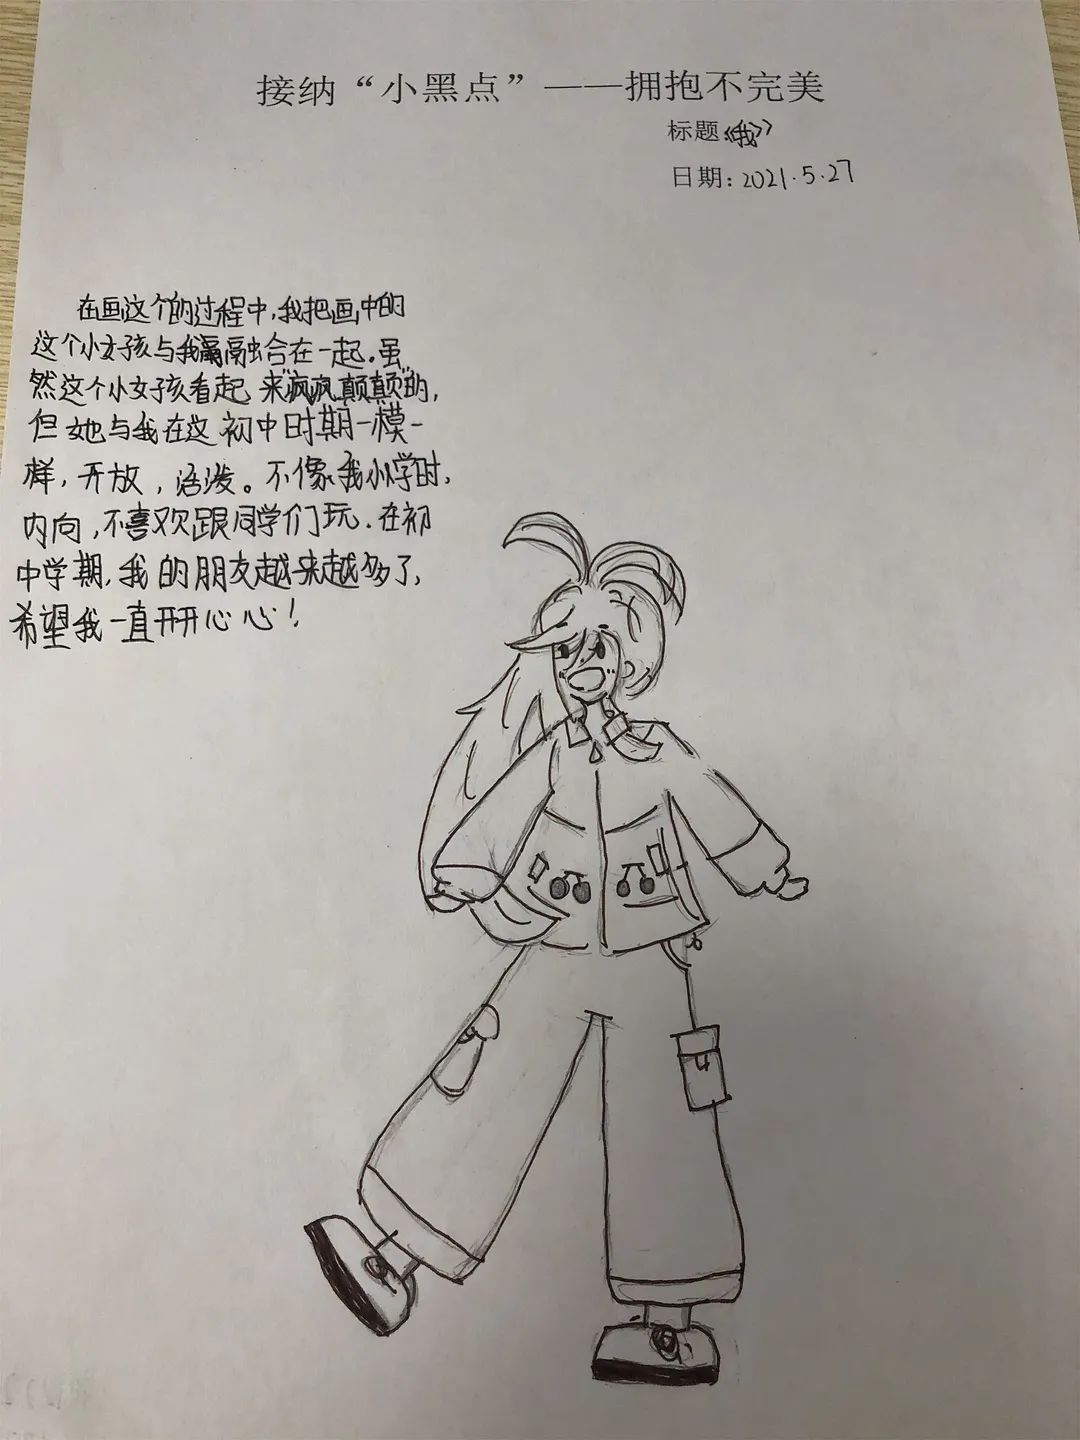 接纳“小黑点”——拥抱不完美
标题《我》
日期：2021.5.27
在画这个的过程中，我把画中的
这个小女孩与我融合在一起。虽
然这个小女孩看起来“疯疯颠颠”的，
但她与我在这初中时期一模一
样，开放，活泼。不像我小学时，
内向，不喜欢跟同学们玩．在初
中学期，我的朋友越来越多了，
希望我一直开开心心！